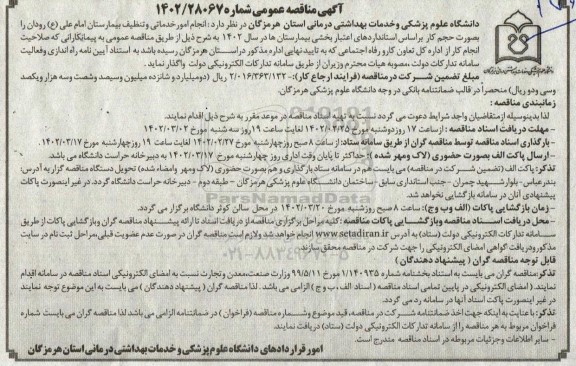 آگهی مناقصه عمومی شماره ۱۴۰۲/۲۸۰۶۷
دانشگاه علوم پزشکی وخدمات بهداشتی درمانی استان هرمزگان در نظر دارد: انجام امور خدماتی وتنظیف بیمارستان امام علی (ع) رودان را
بصورت حجم کار براساس استانداردهای اعتبار بخشی بیمارستان ها در سال ۱۴۰۲ به شرح ذیل از طریق مناقصه عمومی به پیمانکارانی که صلاحیت
انجام کار از اداره کل تعاون کارو رفاه اجتماعی که به تاییدنهایی اداره مذکور در استان هرمزگان رسیده باشد به استناد آیین نامه راه اندازی وفعالیت
سامانه تدارکات دولت ،مصوبه هیات محترم وزیران از طریق سامانه تدارکات الکترونیکی دولت واگذار نماید.
مبلغ تضمین شرکت در مناقصه (فرایند ارجاع کار): ۲/۰۱۶/۳۶۳/۱۳۲ ریال (دومیلیارد و شانزده میلیون وسیصد وشصت وسه هزار ویکصد
وسی ودو ریال) منحصراً در قالب ضمانتنامه بانکی در وجه دانشگاه علوم پزشکی هرمزگان.
زمانبندی مناقصه:
لذا بدینوسیله ازمتقاضیان واجد شرایط دعوت می گردد نسبت به تهیه اسناد مناقصه در موعد مقرر به شرح ذیل اقدام نمایند.
- مهلت دریافت اسناد مناقصه : از ساعت ۱۷ روز دوشنبه مورخ ۱۴۰۲/۰۲/۲۵ لغایت ساعت ۱۹ روز سه شنبه مورخ ۱۴۰۲/۰۳/۰۲
- بارگذاری اسناد مناقصه توسط مناقصه گران از طریق سامانه ستاد: از ساعت ۸ صبح روز چهارشنبه مورخ ۱۴۰۲/۰۲/۲۷ لغایت ساعت ۱۹ روز چهارشنبه مورخ ۱۴۰۲/۰۳/۱۷.
- ارسال پاکت الف بصورت حضوری (لاک ومهر شده ) : حداکثر تا پایان وقت اداری روز چهارشنبه مورخ ۱۴۰۲/۰۳/۱۷ به دبیرخانه حراست دانشگاه می باشد.
تذکر: پاکت الف (تضمین شرکت در مناقصه) می بایست هم در سامانه ستاد بارگذاری و هم بصورت حضوری (لاک ومهر وامضاء شده) تحویل دستگاه مناقصه گزار به آدرس:
بندرعباس- بلوار شهید چمران - جنب استانداری سابق - ساختمان دانشگاه علوم پزشکی هرمزگان - طبقه دوم - دبیرخانه حراست دانشگاه گردد. در غیر اینصورت پاکات
پیشنهادی آنان در سامانه بازگشایی نخواهد شد.
- زمان بازگشایی پاکات (الف و ب و ج): ساعت ۸ صبح روز شنبه، مورخ ۱۴۰۲/۰۳/۲۰ در محل سالن کوثر دانشگاه برگزار می گردد.
- محل دریافت اسناد مناقصه وبازگشایی پاکات مناقصه : کلیه مراحل برگزاری مناقصه از دریافت اسناد تا ارائه پیشنهاد مناقصه گران وبازگشایی پاکات از طریق
سامانه تدارکات الکترونیکی دولت (ستاد) به آدرس www.setadiran.ir انجام خواهد شد ولازم است مناقصه گران در صورت عدم عضویت قبلی،مراحل ثبت نام در سایت
مذکور ودریافت گواهی امضای الکترونیکی را جهت شرکت در مناقصه محقق سازند.
قابل توجه مناقصه گران ( پیشنهاد دهندگان )
تذکر: مناقصه گران می بایست به استناد بخشنامه شماره ۱/۱۴۰۹۳۵ مورخ ۹۹/۵/۱۱ وزارت صنعت،معدن وتجارت نسبت به امضای الکترونیکی اسناد مناقصه در سامانه اقدام
نمایند. ( امضای الکترونیکی در پایین تمامی اسناد مناقصه ( اسناد الف ، ب و ج ) الزامی می باشد. لذا مناقصه گران ( پیشنهاد دهندگان ) می بایست به این موضوع توجه نمایند
در غیر اینصورت پاکت اسناد آنها در سامانه رد می گردد.
تذکر: با عنایت به اینکه جهت اخذ ضمانتنامه شرکت در مناقصه، قید موضوع وشماره مناقصه (فراخوان ) در ضمانتنامه الزامی می باشد لذا مناقصه گران می بایست شماره
فراخوان مربوط به هر مناقصه را از سامانه تدارکات الکترونیکی دولت (ستاد) دریافت نمایند.
- سایر اطلاعات وجزئیات مربوطه در اسناد مناقصه مندرج است.
امور قراردادهای دانشگاه علوم پزشکی و خدمات بهداشتی درمانی استان هرمزگان